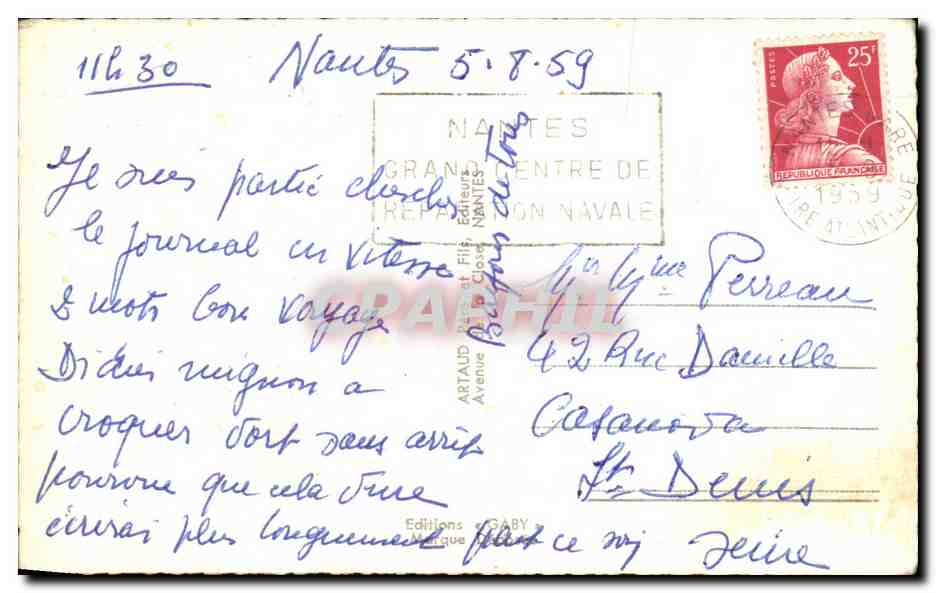 11h30 Nantes 5.8.59
Je suis partie chercher
le journal en vitesse
2 mots bon voyage
Didier mignon a
croquer dort sans arrêt
pourvu que cela dure
écrirai plus longuement ce soir
Baisers de tous
Mr Mme Perreau
42 Rue Danielle
Casanova
St Denis
Seine
NANTES
GRAND CENTRE DE
REPARATION NAVALE
POSTES
25F
REPUBLIQUE FRANÇAISE
1959
LOIRE ATLANTIQUE
ARTAUD Père et Fils, Editeurs
Avenue de la Close, NANTES
Editions "GABY"
Marque Déposée
CPAPHIL